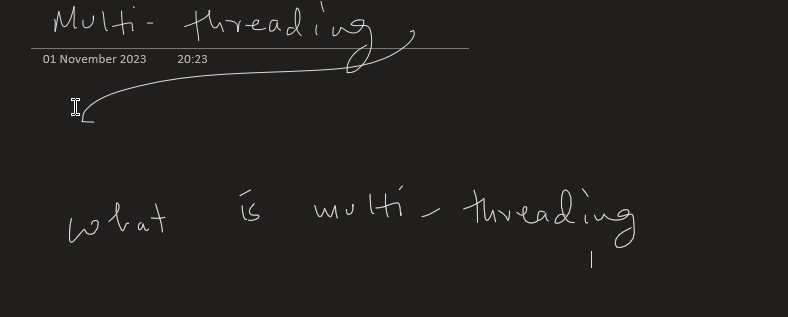 Multi- threading
01 November 2023 20:23
what is multi - threading